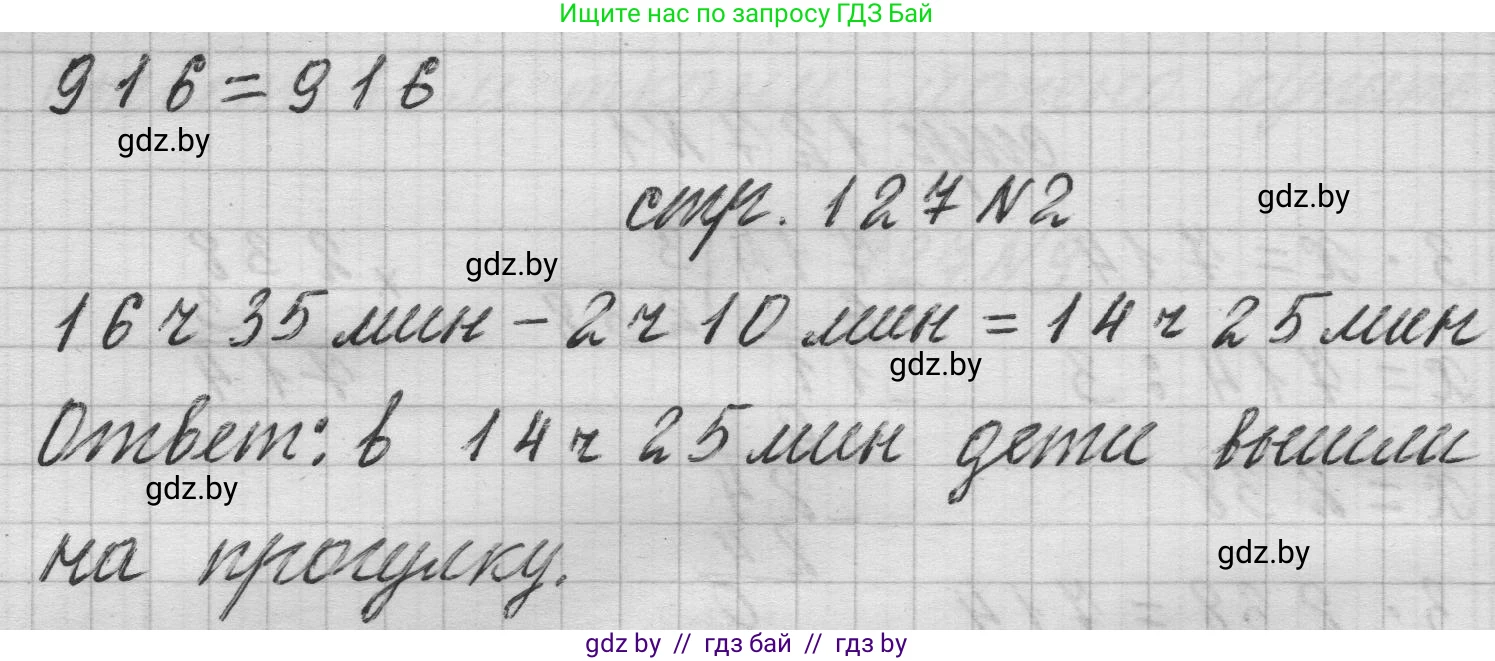 Ищите нас по запросу ГДЗ Бай
916=916
gdz.by
стр. 127 N2
gdz.by
gdz.by
16 ч 35 мин - 2 ч 10 мин = 14 ч 25 мин
gdz.by
Ответ: в 14 ч 25 мин дети вышли
gdz.by
на прогулку.
gdz.by
gdz.by // гдз бай // гдз by